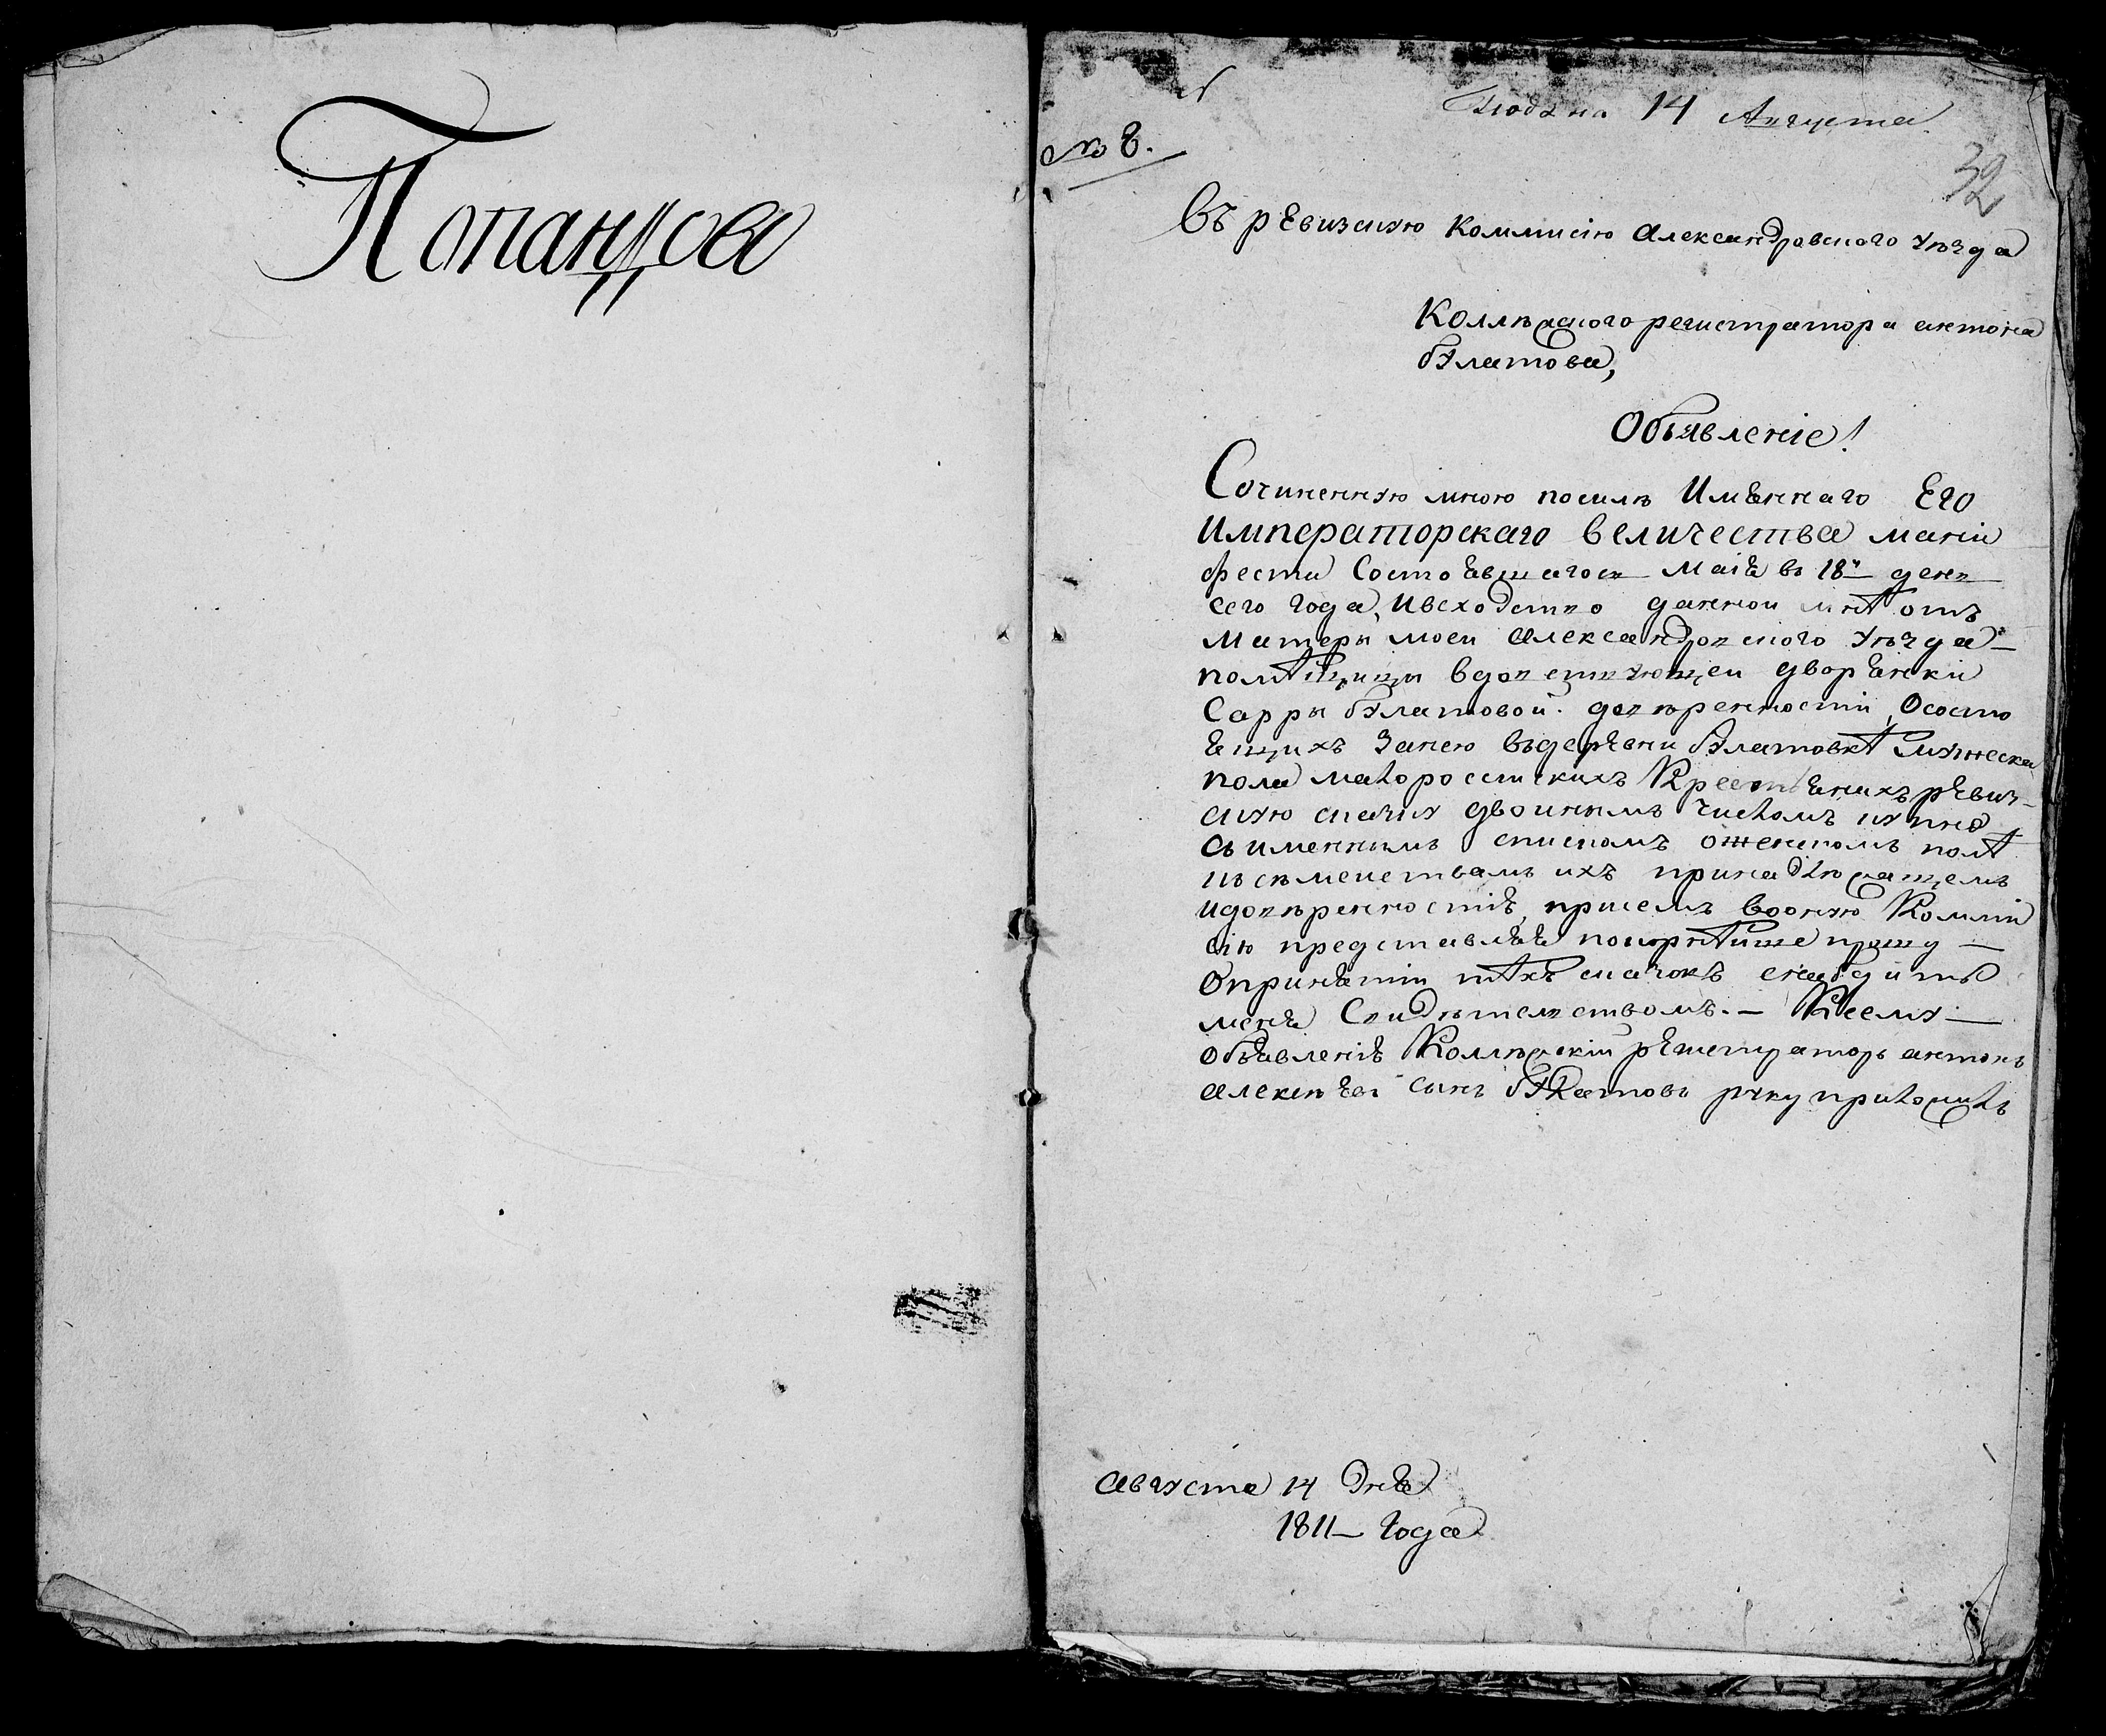 Попандова
№ 8.
14 Августа
32
Въ рѣвизскую Коммисію Александровского уѣзда
Коллѣжского регистратора антона
Булатова,
Объявленіе!
Сочиненную мною посилѣ Имѣннаго Его
Императорскаго величества мани
феста Состоѣвшагося Маіѣ въ 18й день
сего года, ивсходство данной мнѣ отъ
матеры моей александровского уѣзда
помѣщицы вдовствующей дворѣнки
Сарры Булатовой довѣренности, Ососто
ѣщихъ занею въдерѣвни Булатовкѣ Мужеска
пола малоросейскихъ Крестьѣнихъ рѣвиз-
скую скаску двойнымъ числомъ купно
съименнымъ спискомъ оженскомъ полѣ
къ семействамъ ихъ принадлежащемъ
идовѣренностѣ, присемъ вооную Комми
сію представлѣѣ покорнѣйше прошу
Опринѣтіи тѣхъ скасокъ снабдить
менѣ Свидѣтелствомъ. — Ксему
объявленію Коллѣжскій рѣгистраторъ антонъ
алексѣевъ сынъ Булатовъ руку приложилъ
августа 14 Днѣ
1811 года